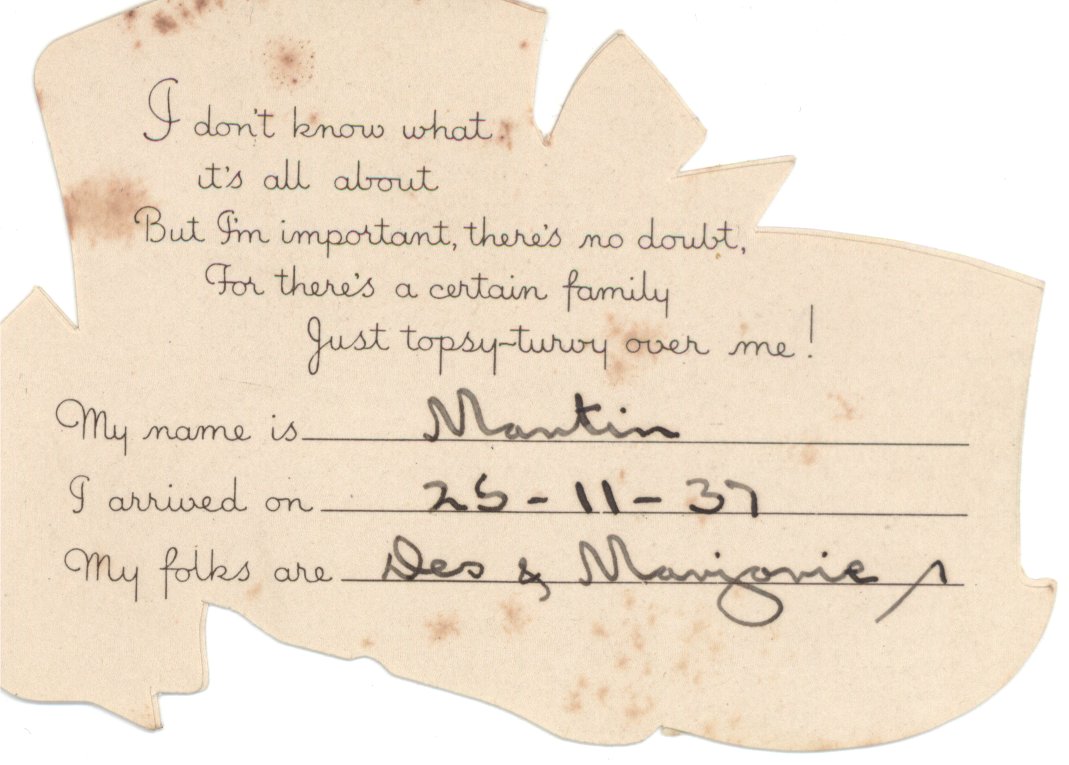 I don't know what
it's all about
But I'm important, there's no doubt,
For there's a certain family
Just topsy-turvy over me!
My name is Martin
I arrived on 25-11-37
My folks are Des & Marjorie